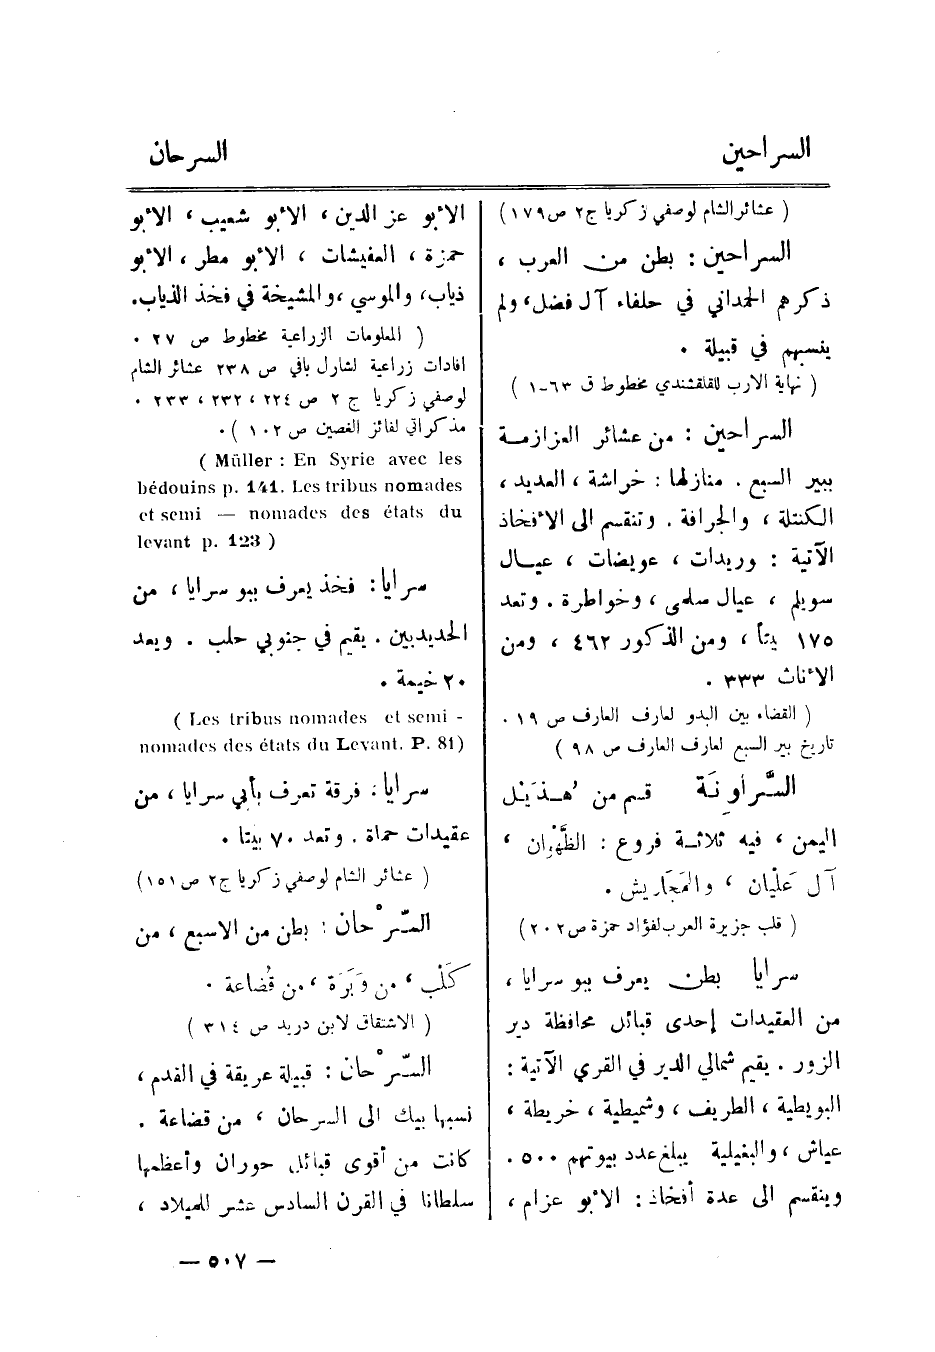 السراحين
السرحان
( عشائر الشام لوصفي زكريا ج٢ ص١٧٩)
السراحين : بطن من العرب ،
ذكرهم الحمداني في حلفاء آل فضل، ولم
ينسبهم في قبيلة .
( نهاية الارب للقلقشندي مخطوط ق ٦٣-١ )
السراحين : من عشائر العزازمة
ببير السبع . منازلها : خراشة ، العديد ،
الكنتلة ، والجرافة . وتنقسم الى الأفخاذ
الآتية : وريدات ، عويضات ، عيال
سويلم ، عيال سلمى ، وخواطرة . وتعد
١٧٥ بيتاً ، ومن الذكور ٤٦٢ ، ومن
الأناث ٣٣٣ .
( القضاء بين البدو لعارف العارف ص ١٩ .
تاريخ بير السبع لعارف العارف ص ٩٨ )
السَّراوِنَة قسم من هُذَيْل
اليمن ، فيه ثلاثة فروع : الظَّهْران ،
آل عَلْيان ، والمَجَاريش .
( قلب جزيرة العرب لفؤاد حمزة ص ٢٠٢ )
سرايا بطن يعرف ببو سرايا ،
من العقيدات إحدى قبائل محافظة دير
الزور . يقيم شمالي الدير في القرى الآتية :
البويطية ، الطريف ، وشميطية ، خريطة ،
عياش ، والبغيلية يبلغ عدد بيوتهم ٥٠٠ .
وينقسم الى عدة أفخاذ : الأبو عزام ،
الأبو عز الدين ، الأبو شعيب ، الأبو
حمزة ، العفيشات ، الأبو مطر ، الأبو
ذياب، والموسي ، والمشيخة في فخذ الذياب.
( المعلومات الزراعية مخطوط ص ٢٧ .
افادات زراعية لشارل بافي ص ٢٣٨ عشائر الشام
لوصفي زكريا ج ٢ ص ٢٢٤ ، ٢٣٢ ، ٢٣٣ .
مذكراتي لفائز الغصين ص ١٠٢ ) .
( Müller : En Syrie avec les
bédouins p. 141. Les tribus nomades
et semi — nomades des états du
levant p. 123 )
سرايا : فخذ يعرف ببو سرايا ، من
الحديديين . يقيم في جنوبي حلب . ويعد
٢٠ خيمة .
( Les tribus nomades et semi -
nomades des états du Levant. P. 81)
سرايا : فرقة تعرف بأبي سرايا ، من
عقيدات حماة . وتعد ٧٠ بيتا .
( عشائر الشام لوصفي زكريا ج٢ ص١٥١)
السِّرْحان : بطن من الاسبع ، من
كَلْب ، من وَبَرَة ، من قُضاعة .
( الاشتقاق لابن دريد ص ٣١٤ )
السِّرْحان : قبيلة عريقة في القدم ،
نسبها بيك الى السرحان ، من قضاعة .
كانت من أقوى قبائل حوران وأعظمها
سلطانا في القرن السادس عشر للميلاد ،
— ٥٠٧ —